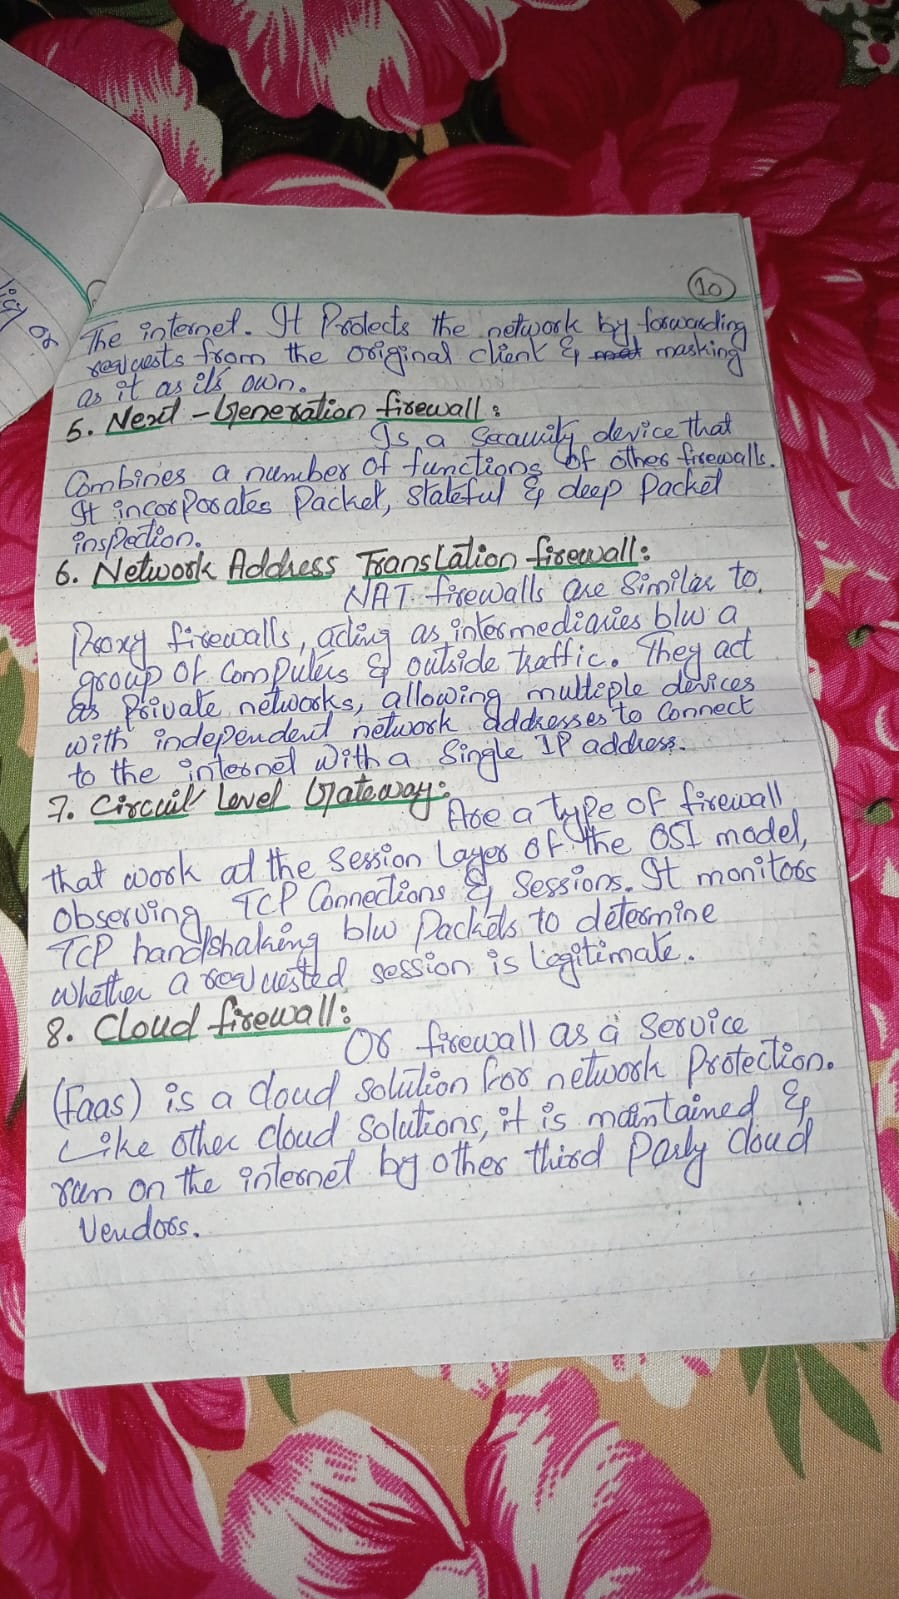 10
The internet. It Protects the network by forwarding
requests from the original client & masking
as it as its own.
5. Next-Generation firewall:
Is a Secauity device that
Combines a number of functions of other firewalls.
It incorporates Packet, Stateful & deep Packet
inspection.
6. Network Address Translation firewall:
NAT firewalls are Similar to
Proxy firewalls, acting as intermediaries b/w a
group of Computers & outside traffic. They act
as Private networks, allowing multiple devices
with independent network addresses to Connect
to the internet with a Single IP address.
7. Circuit Level Gateway:
Are a type of firewall
that work at the Session Layer of the OSI model,
Observing TCP Connections & Sessions. It monitors
TCP handshaking b/w Packets to determine
whether a requested session is legitimate.
8. Cloud firewall:
Or firewall as a Service
(faas) is a cloud Solution for network Protection.
Like other cloud Solutions, it is maintained &
run on the internet by other third Party Cloud
Vendors.
or